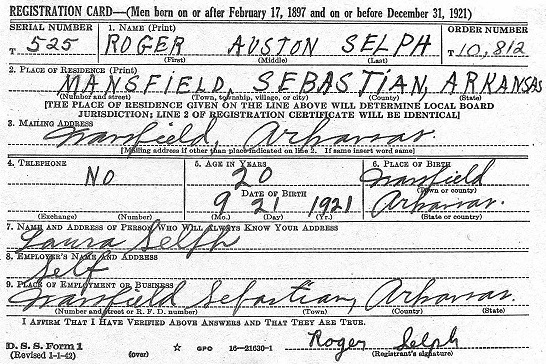 REGISTRATION CARD—(Men born on or after February 17, 1897 and on or before December 31, 1921)
SERIAL NUMBER 1. NAME (Print) ORDER NUMBER
T 525 ROGER AUSTON SELPH T 10,812
(First) (Middle) (Last)
2. PLACE OF RESIDENCE (Print)
MANSFIELD, SEBASTIAN, ARKANSAS
(Number and street) (Town, township, village, or city) (County) (State)
[THE PLACE OF RESIDENCE GIVEN ON THE LINE ABOVE WILL DETERMINE LOCAL BOARD
JURISDICTION; LINE 2 OF REGISTRATION CERTIFICATE WILL BE IDENTICAL]
3. MAILING ADDRESS
Mansfield, Arkansas.
[Mailing address if other than place indicated on line 2. If same insert word same]
4. TELEPHONE 5. AGE IN YEARS 6. PLACE OF BIRTH
NO 20 Mansfield
DATE OF BIRTH (Town or county)
9 21 1921 Arkansas.
(Exchange) (Number) (Mo.) (Day) (Yr.) (State or country)
7. NAME AND ADDRESS OF PERSON WHO WILL ALWAYS KNOW YOUR ADDRESS
Laura Selph
8. EMPLOYER'S NAME AND ADDRESS
Self
9. PLACE OF EMPLOYMENT OR BUSINESS
Mansfield Sebastian, Arkansas.
(Number and street or R. F. D. number) (Town) (County) (State)
I AFFIRM THAT I HAVE VERIFIED ABOVE ANSWERS AND THAT THEY ARE TRUE.
D. S. S. Form 1 Roger Selph
(Revised 1-1-42) (over) ☆ GPO 16—21630-1 (Registrant's signature)